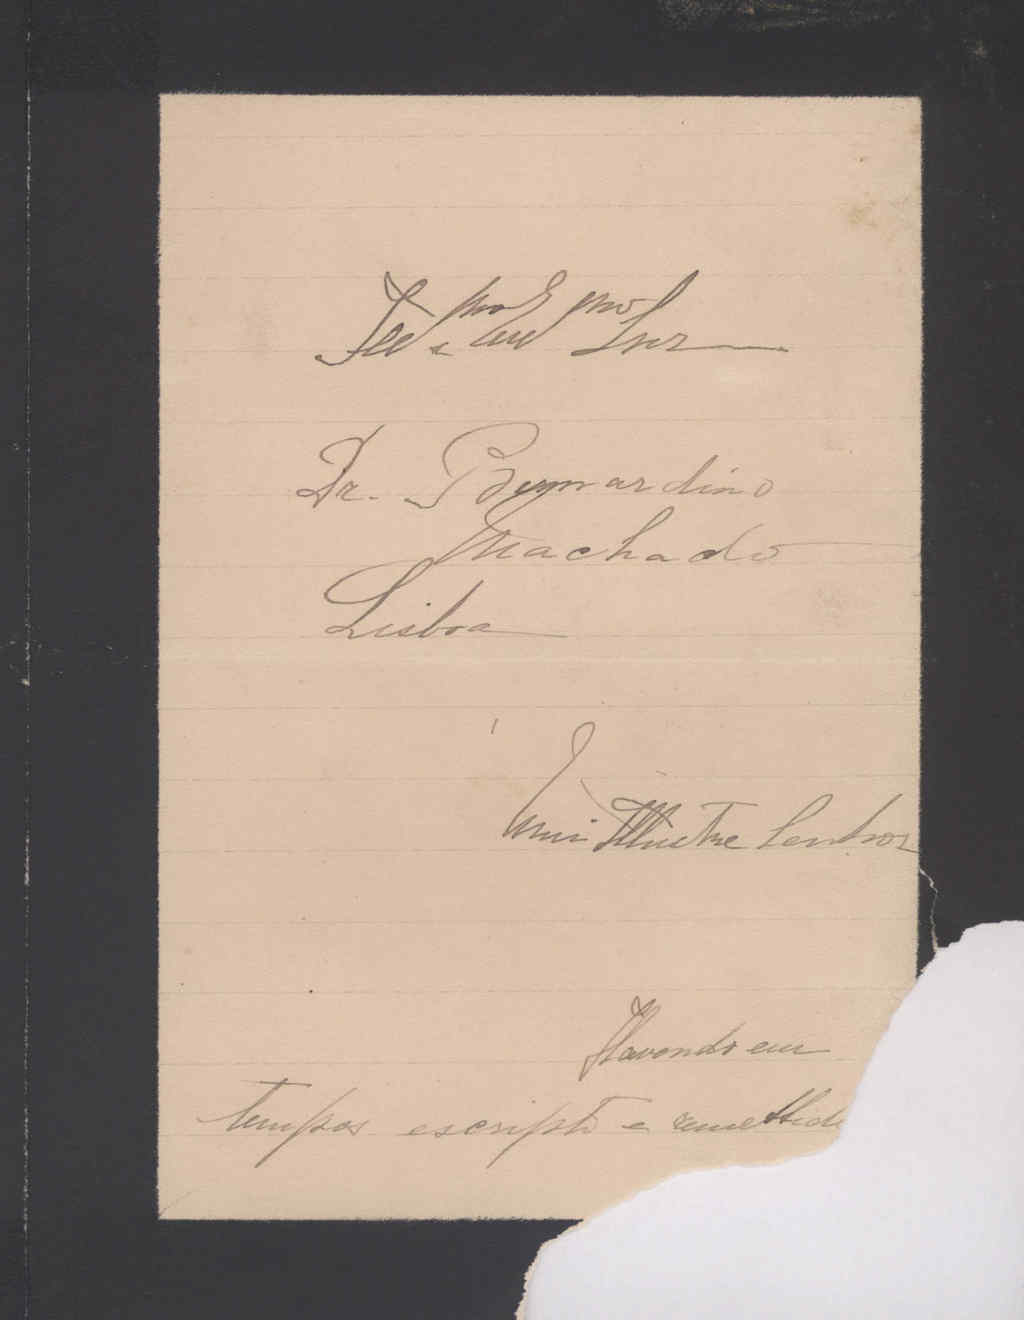 Snr
Dr. Bernardino
Machado
Lisboa
Mui Illustre Senhor
Havendo eu
tempos escripto e remettido